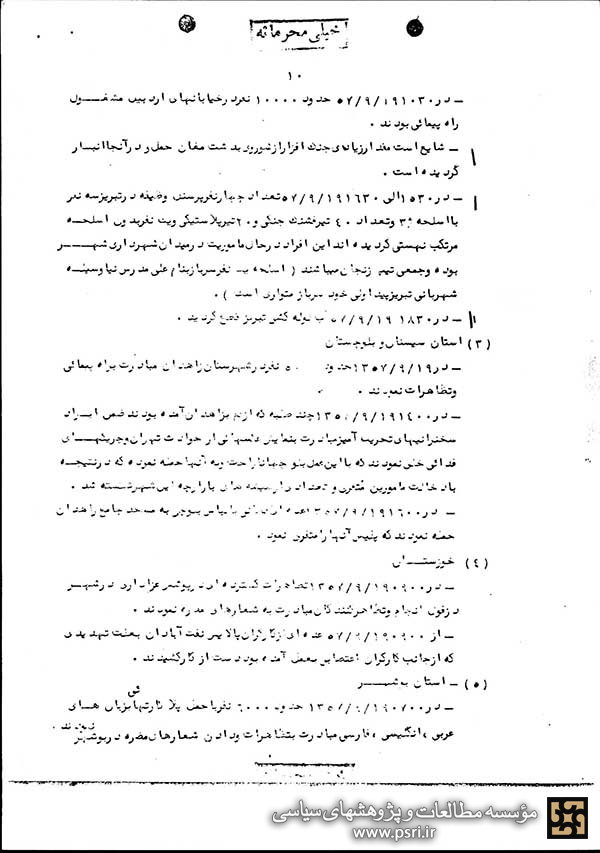 خیلی محرمانه
۱۰
ـ در ۱۰۳۰ ۵۷/۹/۱۹ حدود ۱۰۰۰۰ نفر در خیابانهای اردبیل مشغول
راه پیمائی بودند .
ـ شایع است مقداری از جنگ افزار از شوروی بدشت مغان حمل و در آنجا انبار
گردیده است .
ـ در ۱۵۳۰ الی ۱۶۳۰ ۵۷/۹/۱۹ تعداد چهار نفر پرسنل وظیفه در تبریز سه نفر
با اسلحه ژ۳ و تعداد ۴۰ تیر فشنگ جنگی و ۲۰ تیر پلاستیکی ویک نفر بدون اسلحه
مرتکب نهستی گردیده اند این افراد در حال ماموریت در میدان شهرداری شهر
بوده و جمعی تیپ زنجان میباشند ( اسلحه یک نفر سرباز بنام علی مدرس نیا وسیله
شهربانی تبریز پیدا ولی خود سرباز متواری است ) .
ـ در ۱۸۳۰ ۵۷/۹/۱۹ آب لوله کشی تبریز قطع گردید .
(۳) استان سیستان و بلوچستان
ـ در ۱۳۵۷/۹/۱۹ حدود نفر در شهرستان زاهدان مبادرت براه پیمائی
وتظاهرات نمودند .
ـ در ۱۴۰۰ ۱۳۵۷/۹/۱۹ چند طلبه که از قم بزاهدان آمده بودند ضمن ایراد
سخنرانیهای تحریک آمیز مبادرت بنمایش از حوادث تهران و چریکهای
فدائی خلق نمودند که با این عمل بلوچها ناراحت و به آنها حمله نموده که در نتیجه
با دخالت مامورین متفرق و تعدادی از شیشه های بازارچه این شهر شکسته شد .
ـ در ۱۶۰۰ ۱۳۵۷/۹/۱۹ عده ای با لباس بلوچی به مسجد جامع زاهدان
حمله نمودند که پلیس آنها را متفرق نمود .
(۴) خوزستان
ـ در ۰۹۰۰ ۱۳۵۷/۹/۱۹ تظاهرات گسترده ای در پوشش عزاداری در شهر
دزفول انجام وتظاهر کنندگان مبادرت به شعارهای مضره نمودند .
ـ از ۰۹۰۰ ۵۷/۹/۱۹ عده ای از کارگران پالایش نفت آبادان بعلت تهدیدی
که از جانب کارگران اعتصابی بعمل آمده بود دست از کار کشیدند .
(۵) ـ استان بوشهر
ـ در ۰۷۰۰ ۱۳۵۷/۹/۱۹ حدود ۶۰۰۰ نفر با حمل پلاکارتهائی بزبان های
عربی ، انگلیسی ، فارسی مبادرت بتظاهرات و دادن شعارهای مضره در بوشهر نمودند .
خیلی محرمانه
مؤسسه مطالعات و پژوهشهای سیاسی
www.psri.ir